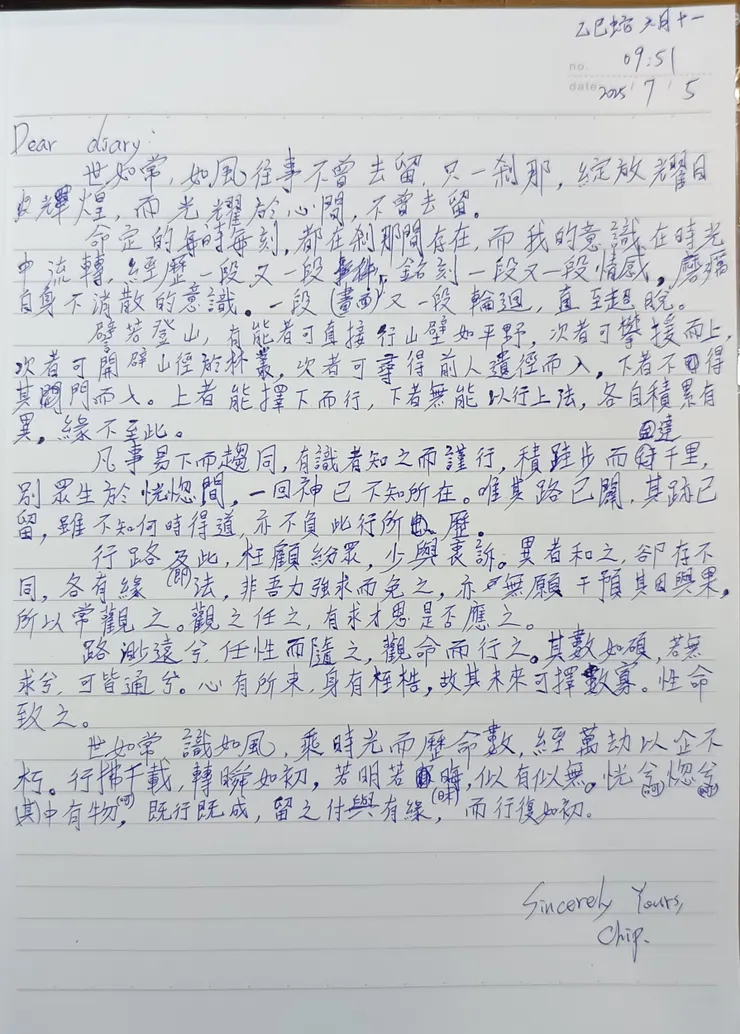 乙巳蛇 六月十一
no. 09:51
date 2025 / 7 / 5
Dear diary:
世如常,如風往事不曾去留,只一剎那,綻放耀目
輝煌,而光耀於心間,不曾去留。
命定的每時每刻,都在剎那間存在,而我的意識在時光
中流轉,經歷一段又一段事件,銘刻一段又一段情感,磨礪
自身不消散的意識。一段(畫面)又一段輪迴,直至超脫。
譬若登山,有能者可直接行山壁如平野,次者可攀援而上,
次者可開辟山徑於林叢,次者可尋得前人遺徑而入,下者不得
其門而入。上者能擇下而行,下者無能以行上法,各自積累有
異,緣不至此。
凡事易下而趨同,有識者知之而謹行,積跬步而達千里,
別眾生於恍惚間,一回神已不知所在。唯其路已開,其跡已
留,雖不知何時得道,亦不負此行所歷。
行路及此,枉顧紛眾,少與衷訴。異者和之,卻存不
同,各有緣(即)法,非吾力強求而免之,亦無願干預其因與果,
所以常觀之。觀之任之,有求才思是否應之。
路渺遠兮,任性而隨之,觀命而行之。其數如碩,若無
求兮,可皆通兮。心有所束,身有桎梏,故其未來可擇數寡。性命
致之。
世如常 識如風,乘時光而歷命數,經萬劫以企不
朽。行拂千載,轉瞬如初,若明若晦,似有似無。恍兮惚兮
其中有物,既行既成,留之付與有緣,而行復如初。
Sincerely Yours,
Chip.